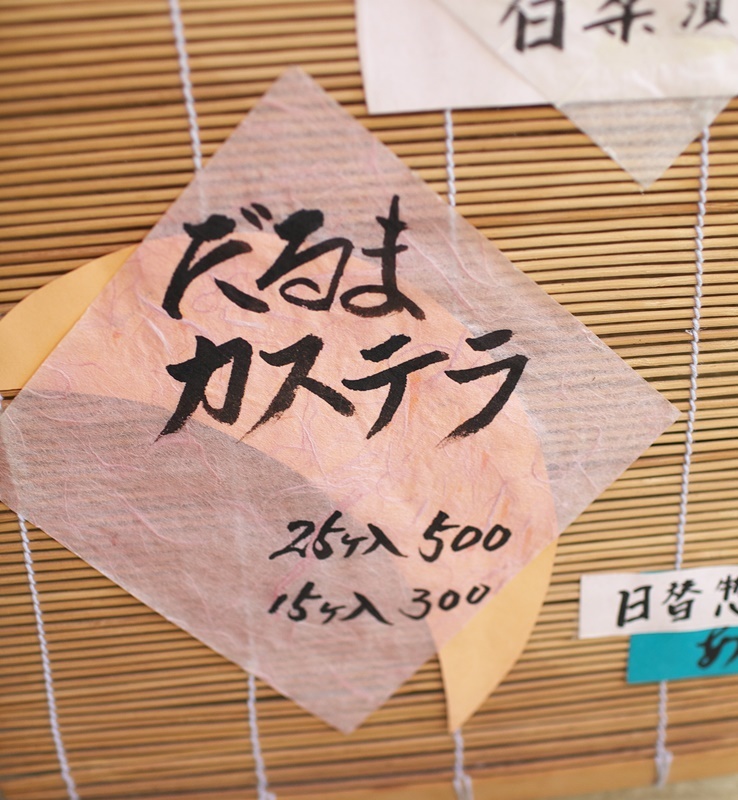 だるま
カステラ
25ヶ入 500
15ヶ入 300
日替